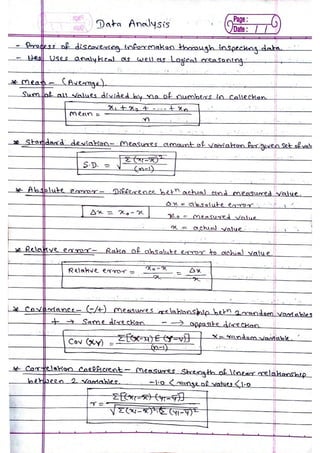 Data Analysis
Page:
Date: / /
- Process of discovering information through inspecting data.
- Uses analytical as well as Logical reasoning.
* Mean - (Average).
Sum of all values divided by no of numbers in collection
mean = x₁ + x₂ + .... + xₙ / n
* Standard deviation - Measures amount of variation for given set of val
S.D. = √ Σ(xi-x̄)² / (n-1)
* Absolute error - Difference betⁿ actual and measured value.
Δx = absolute error
Δx = x₀ - x
x₀ = measured value
x = actual value
* Relative error - Ratio of absolute error to actual value
Relative error = x₀-x / x = Δx / x
* Covariance - (-/+) measures relationship betⁿ 2 random variables
+ → Same direction - → opposite direction
Cov (x,y) = Σ[(x-u) E (y-v)] / (n-1)
x = random variable.
* Correlation Coefficient - measures strength of linear relationship
between 2 variables. -1.0 < range of values < 1.0
r = Σ[(xi-x̄) (yi-ȳ)] / √Σ(xi-x̄)² Σ(yi-ȳ)²